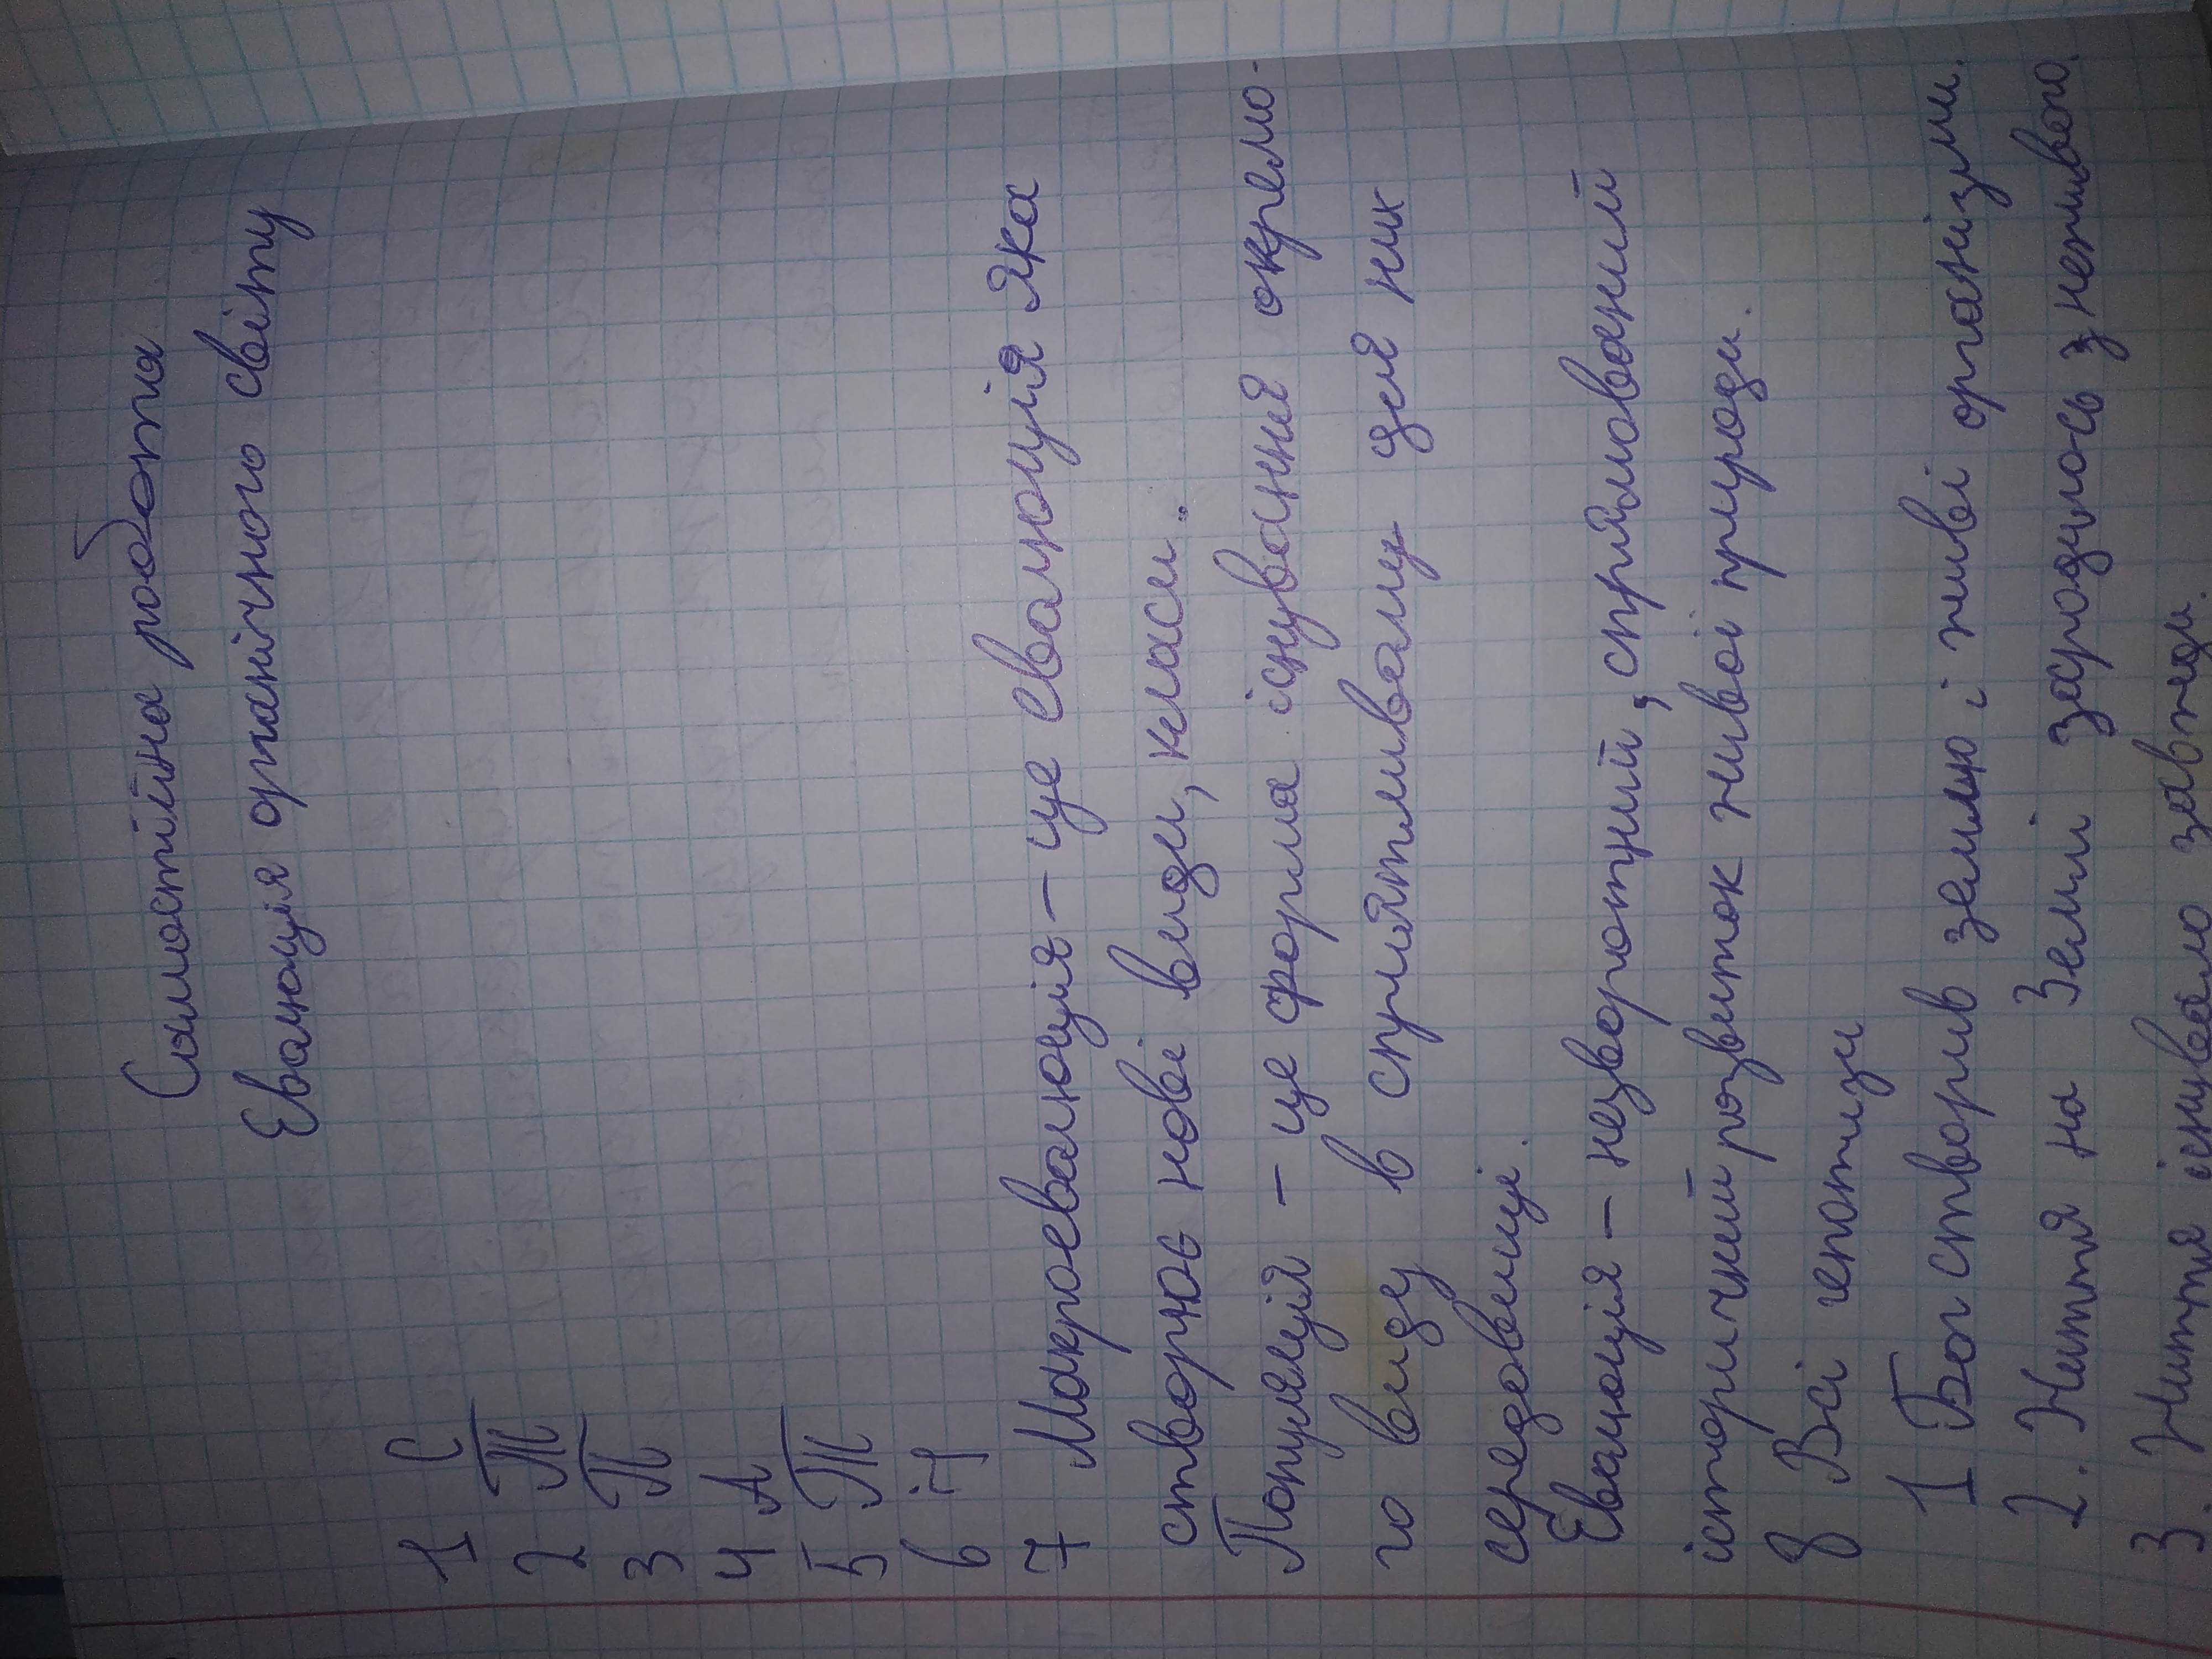 Самостійна робота
Еволюція органічного світу
1 С
2 Т
3 П
4 А
5 Т
6 Н
7 Макроеволюція – це еволюція яка
створює нові види, класи.
Популяція – це форма існування окремо-
го виду в сприятливому для них
середовищі.
Еволюція – незворотний, спрямований
історичний розвиток живої природи.
8 Всі гепотизи
1 Бог створив землю і живі організми.
2. Життя на Землі зародилось з неживого.
3. Життя існувало завжди.